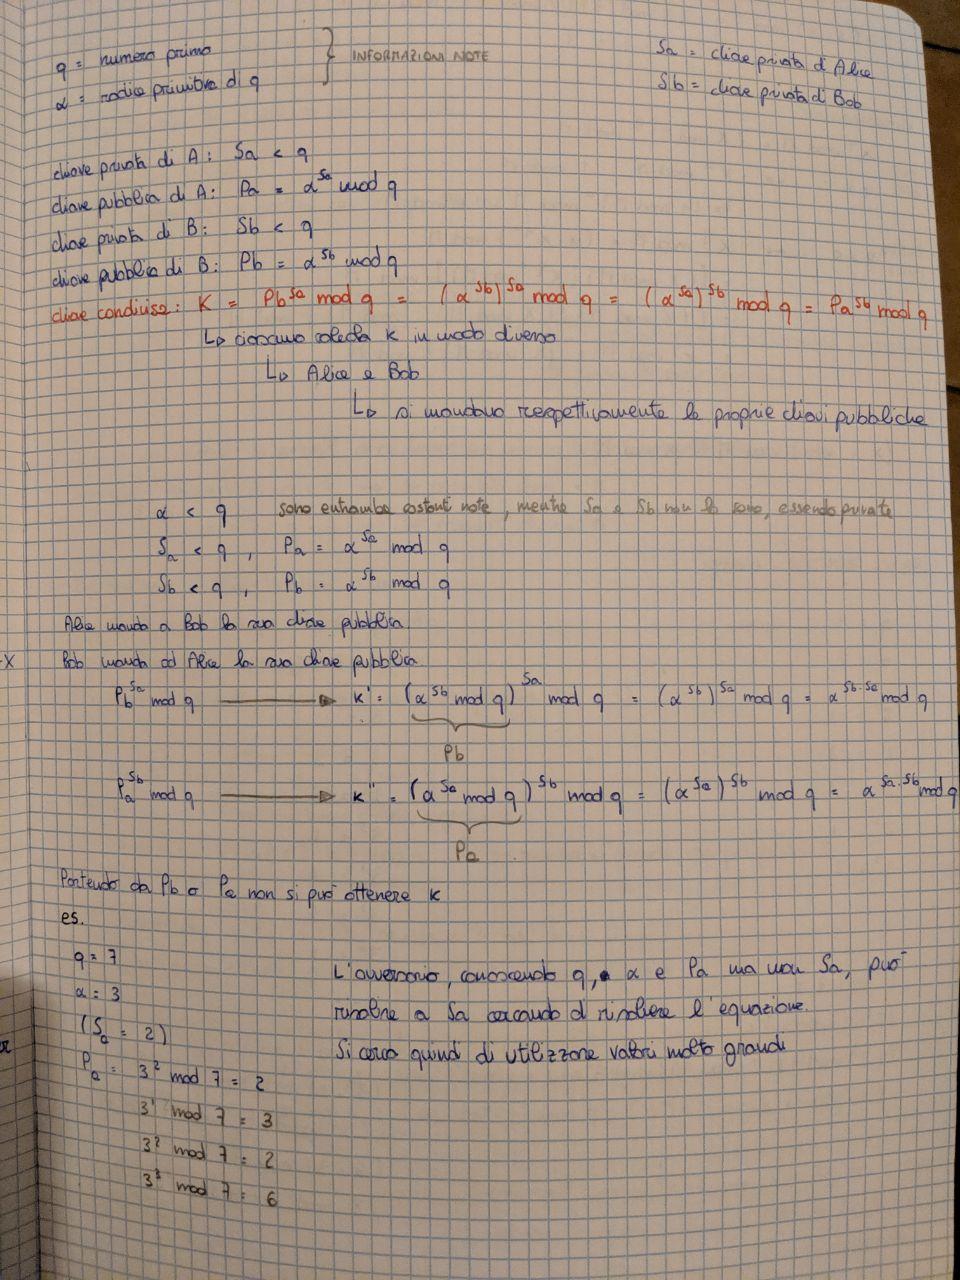 q = numero primo
α = radice primitiva di q
INFORMAZIONI NOTE
Sa = chiave privata di Alice
Sb = chiave privata di Bob
chiave privata di A: Sa < q
chiave pubblica di A: Pa = α^Sa mod q
chiave privata di B: Sb < q
chiave pubblica di B: Pb = α^Sb mod q
chiave condivisa: K = Pb^Sa mod q = (α^Sb)^Sa mod q = (α^Sa)^Sb mod q = Pa^Sb mod q
↳ ciascuno calcola K in modo diverso
↳ Alice e Bob
↳ si mandano rispettivamente le proprie chiavi pubbliche
α < q sono entrambe costanti note, mentre Sa e Sb non lo sono, essendo private
Sa < q, Pa = α^Sa mod q
Sb < q, Pb = α^Sb mod q
Alice manda a Bob la sua chiave pubblica
Bob manda ad Alice la sua chiave pubblica
Pb^Sa mod q → K' = (α^Sb mod q)^Sa mod q = (α^Sb)^Sa mod q = α^Sb·Sa mod q
Pb
Pa^Sb mod q → K'' = (α^Sa mod q)^Sb mod q = (α^Sa)^Sb mod q = α^Sa·Sb mod q
Pa
Partendo da Pb o Pa non si può ottenere K
es.
q = 7
α = 3
(Sa = 2)
Pa = 3^2 mod 7 = 2
3^1 mod 7 = 3
3^2 mod 7 = 2
3^3 mod 7 = 6
L'avversario, conoscendo q, α e Pa ma non Sa, può
risalire a Sa cercando di risolvere l'equazione.
Si cerca quindi di utilizzare valori molto grandi